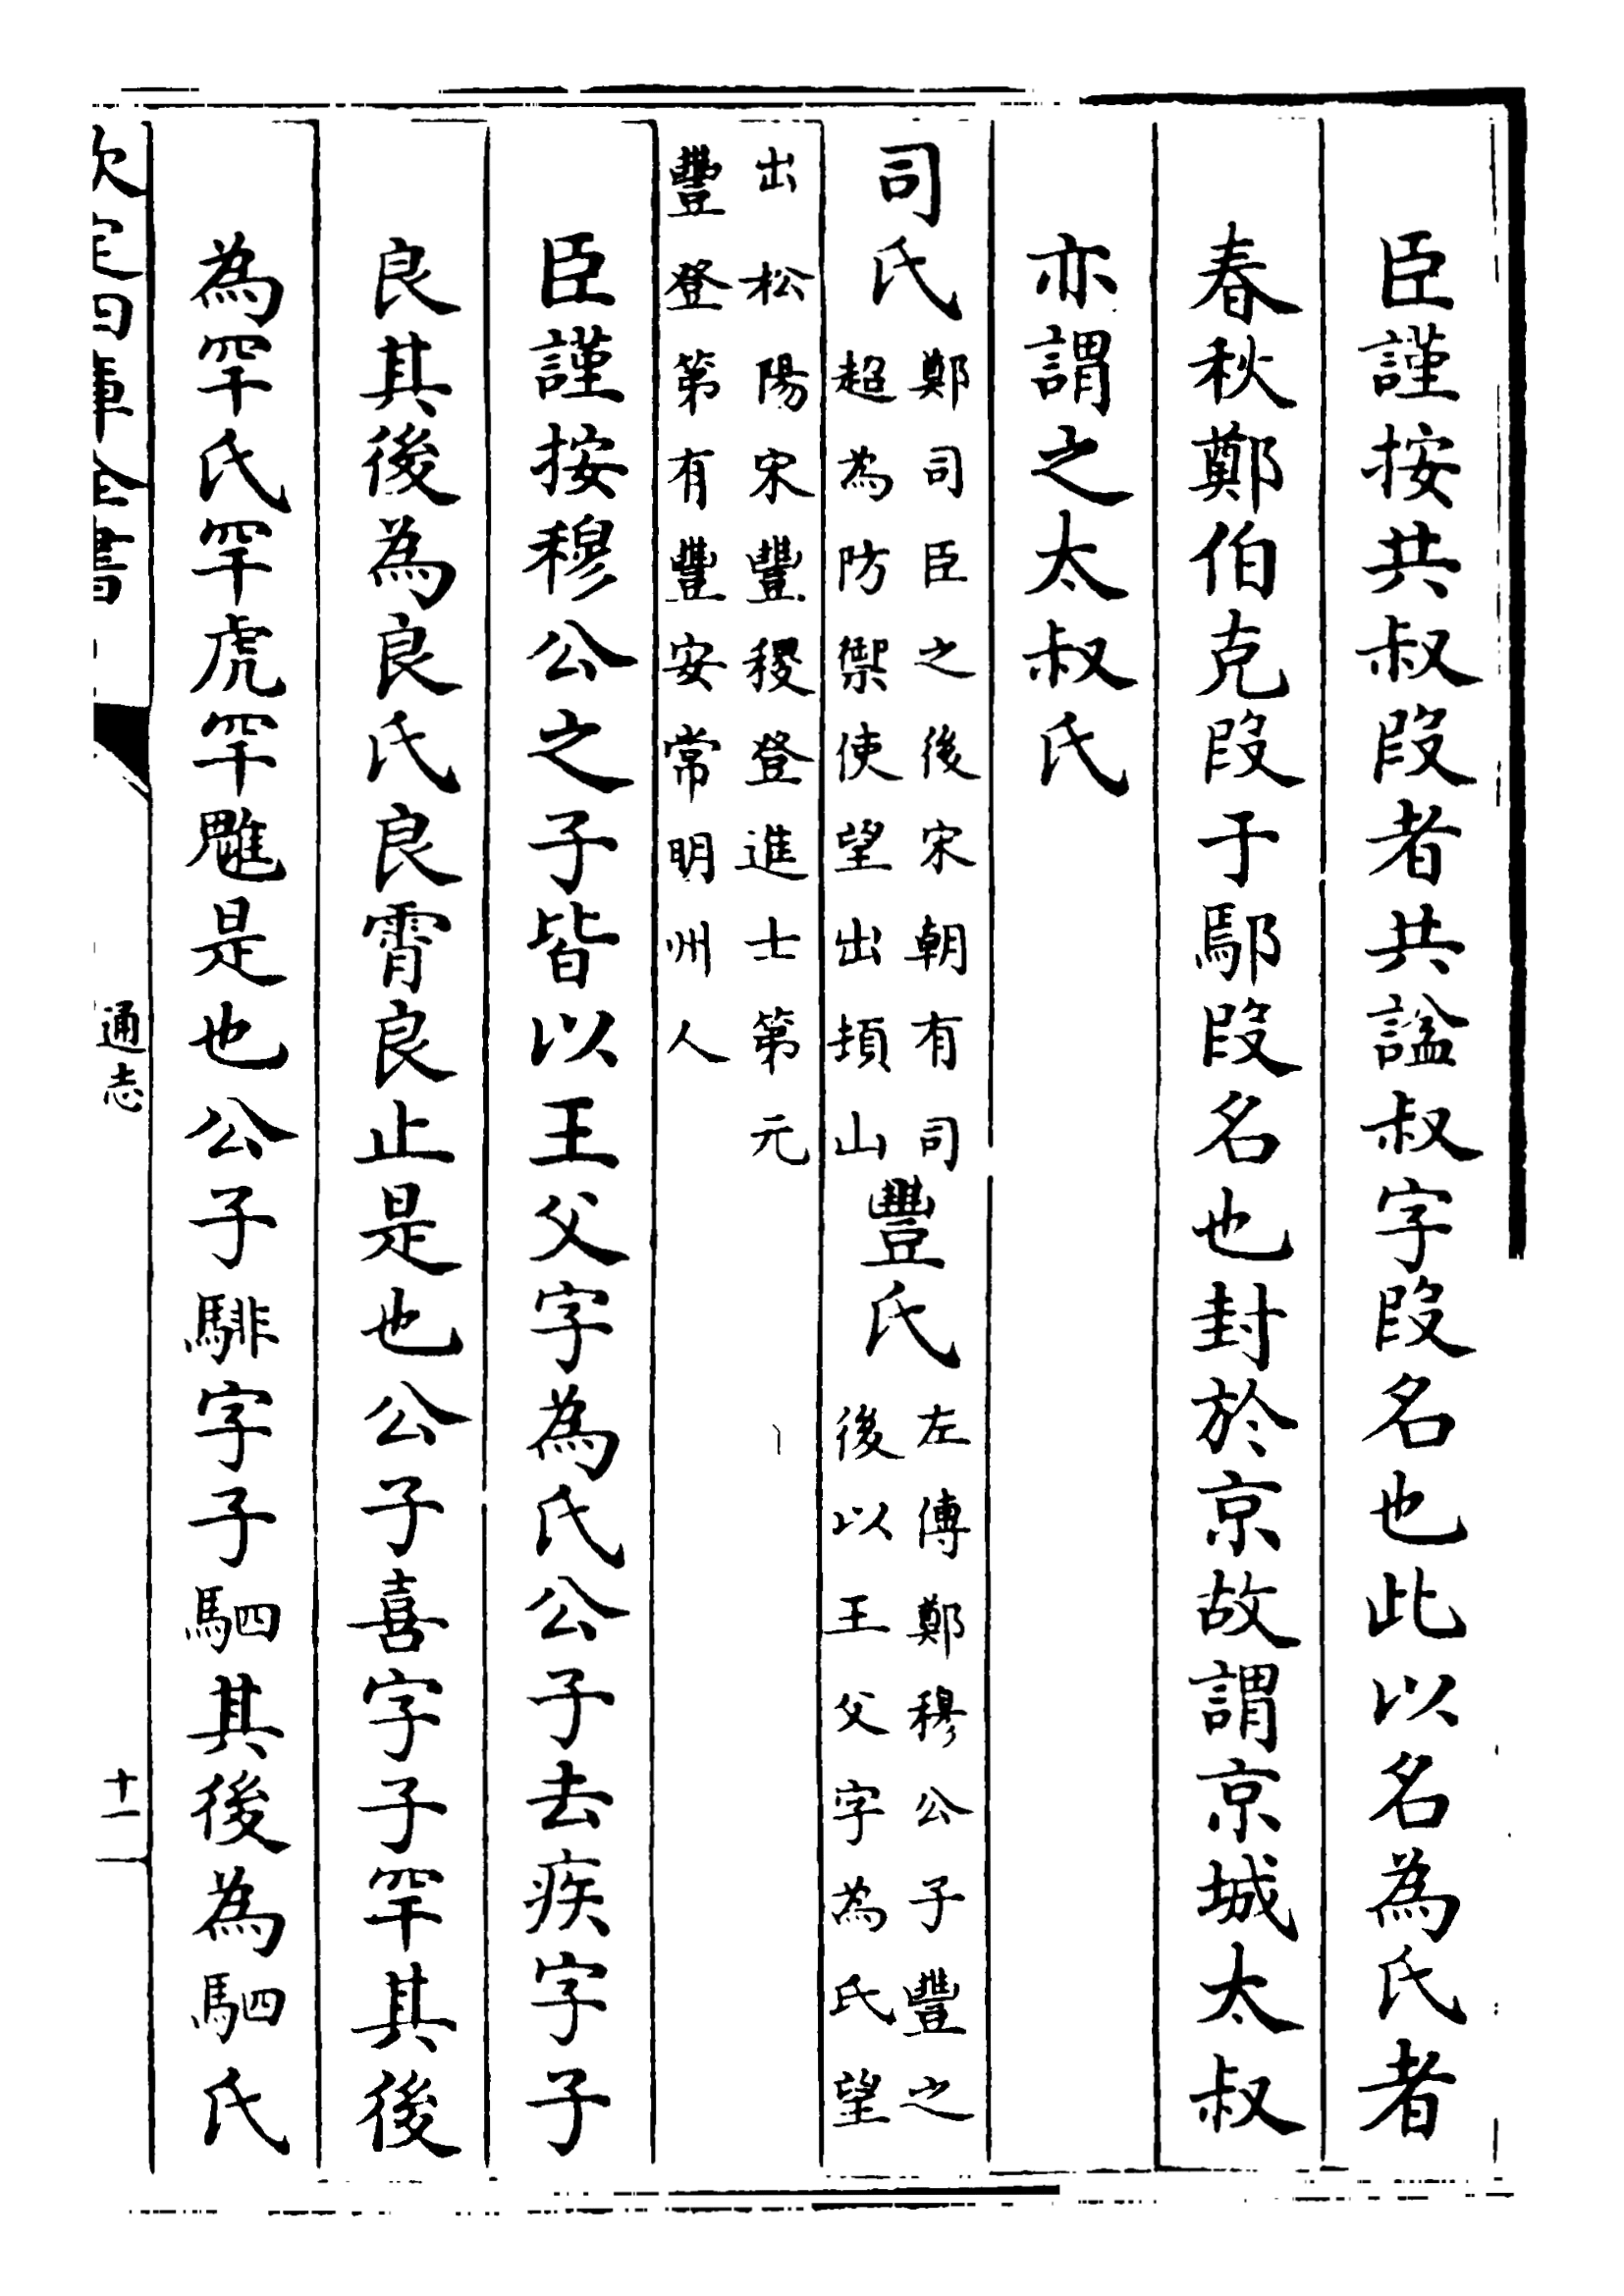 臣謹按共叔段者共諡叔字段名也此以名為氏者
春秋鄭伯克段于鄢段名也封於京故謂京城太叔
亦謂之太叔氏
司氏
鄭司臣之後宋朝有司
超為防禦使望出頓山
豐氏
左傳鄭穆公子豐之
後以王父字為氏望
出松陽宋豐稷登進士第元
豐登第有豐安常明州人
臣謹按穆公之子皆以王父字為氏公子去疾字子
良其後為良氏良霄良止是也公子喜字子罕其後
為罕氏罕虎罕魋是也公子騑字子駟其後為駟氏
欽定四庫全書
通志
十一